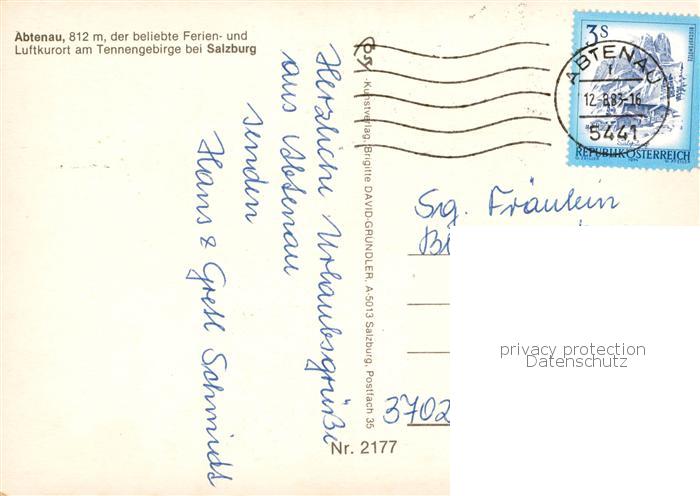 Abtenau, 812 m, der beliebte Ferien- und
Luftkurort am Tennengebirge bei Salzburg
Herzliche Urlaubsgrüße
aus Abtenau
senden
Hans & Gretl Schmidt
Rosy -Kunstverlag, Brigitte DAVID-GRUNDLER, A-5013 Salzburg, Postfach 35
Nr. 2177
3S
ABTENAU
12.-8.83-16
5441
REPUBLIK ÖSTERREICH
Srg. Fräulein
3702
privacy protection
Datenschutz